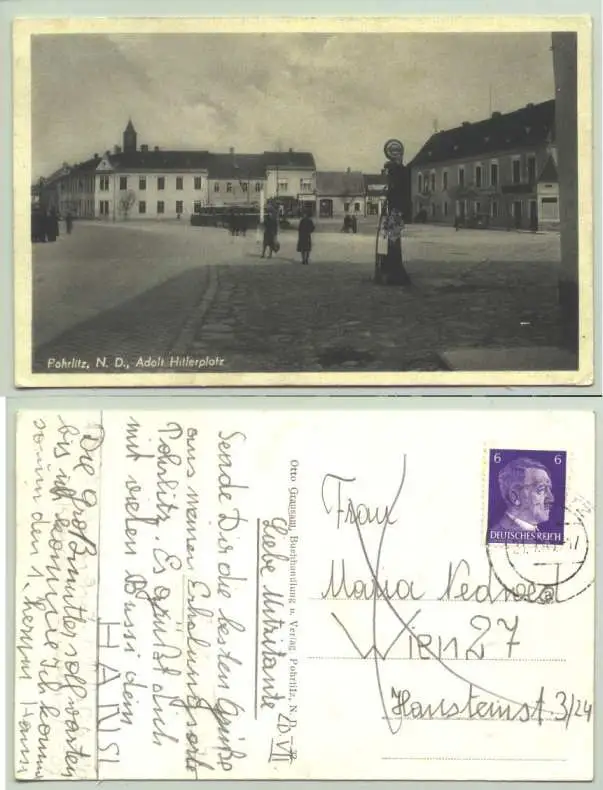 Pohrlitz, N. D., Adolf Hitlerplatz
Die Großmutter soll warten
bis ich komme. Ich komme
den 1. herum Hansi
Liebe Mitzitante
20 VII
Sende Dir die besten Grüße
aus meinen Erholungsorte
Pohrlitz. Es grüßt dich
mit vielen Bussi dein
HANSI
Otto Grausam, Buchhandlung u. Verlag, Pohrlitz, N. D.
6 6
DEUTSCHES REICH
Frau
Maria
Wien 27
Hansteinst. 3/24